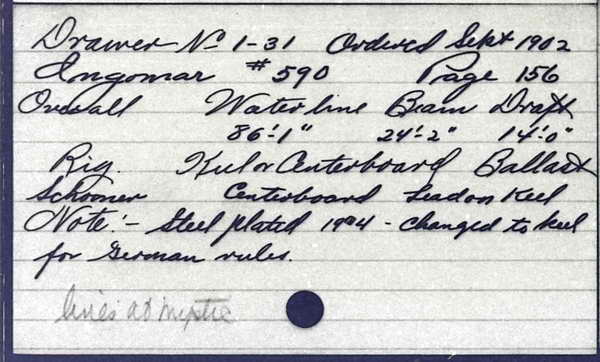 Drawer No 1-31 Ordered Sept 1902
Ingomar #590 Page 156
Overall Waterline Beam Draft
86'-1" 24'-2" 14'-0"
Rig. Keel or Centerboard Ballast
Schooner Centerboard Lead on Keel
Note:- Steel plated 1904 - changed to keel
for German rules.
lines at mystic